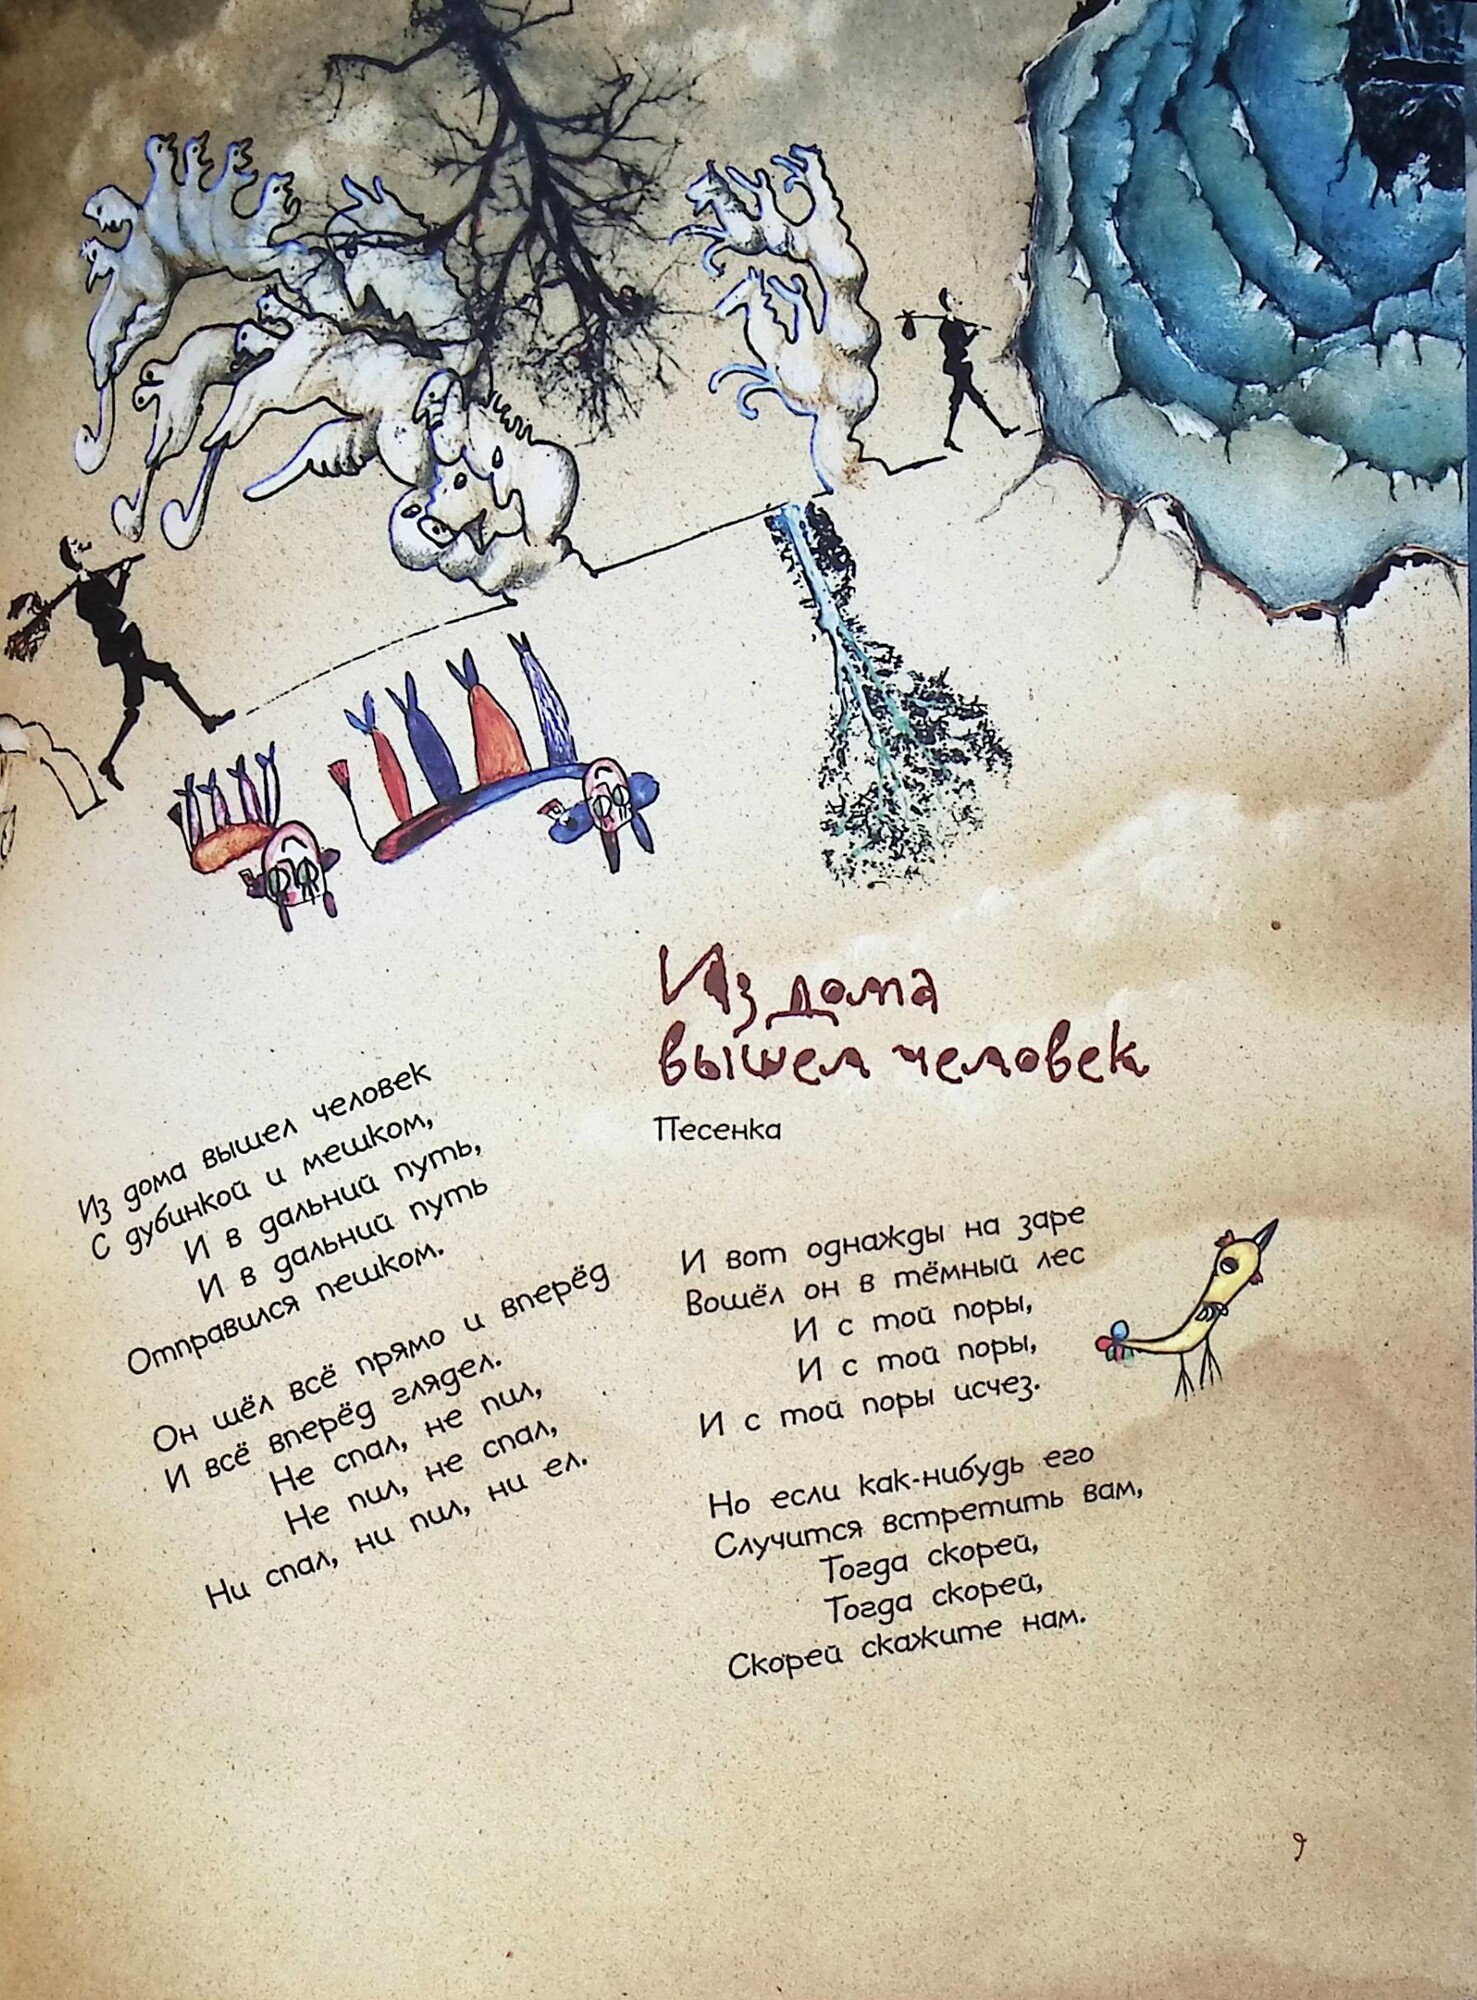 Из дома
вышел человек
Песенка
Из дома вышел человек
С дубинкой и мешком,
И в дальний путь,
И в дальний путь
Отправился пешком.
Он шёл всё прямо и вперёд
И всё вперёд глядел.
Не спал, не пил,
Не пил, не спал,
Ни спал, ни пил, ни ел.
И вот однажды на заре
Вошёл он в тёмный лес
И с той поры,
И с той поры,
И с той поры исчез.
Но если как-нибудь его
Случится встретить вам,
Тогда скорей,
Тогда скорей,
Скорей скажите нам.
9